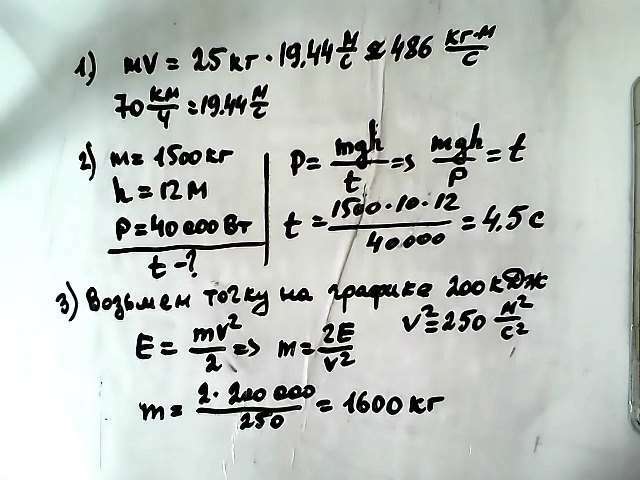 1) mv = 25 кг · 19,44 м/с ≈ 486 кг·м/с
70 км/ч = 19,44 м/с
2) m = 1500 кг
h = 12 м
P = 40 000 Вт
t - ?
P = mgh/t => mgh/P = t
t = 1500·10·12/40000 = 4,5 с
3) Возьмем точку на графике 200 кДж
v² = 250 м²/с²
E = mv²/2 => m = 2E/v²
m = 2·200 000/250 = 1600 кг